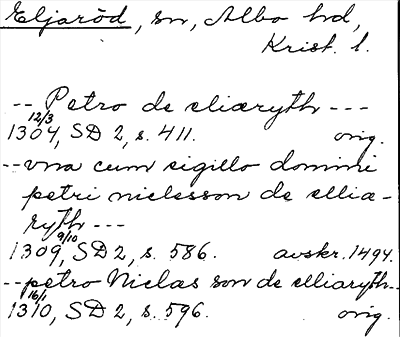 Eljaröd, sn, Albo hd,
Krist. l.
-- Petro de eliæryth ---
12/3
1304, SD 2, s. 411. orig.
-- vna cum sigillo domini
petri nielesson de ellia-
ryth ---
9/10
1309, SD 2, s. 586. avskr. 1494.
-- petro Niclas son de elliaryth --
16/1
1310, SD 2, s. 596. orig.